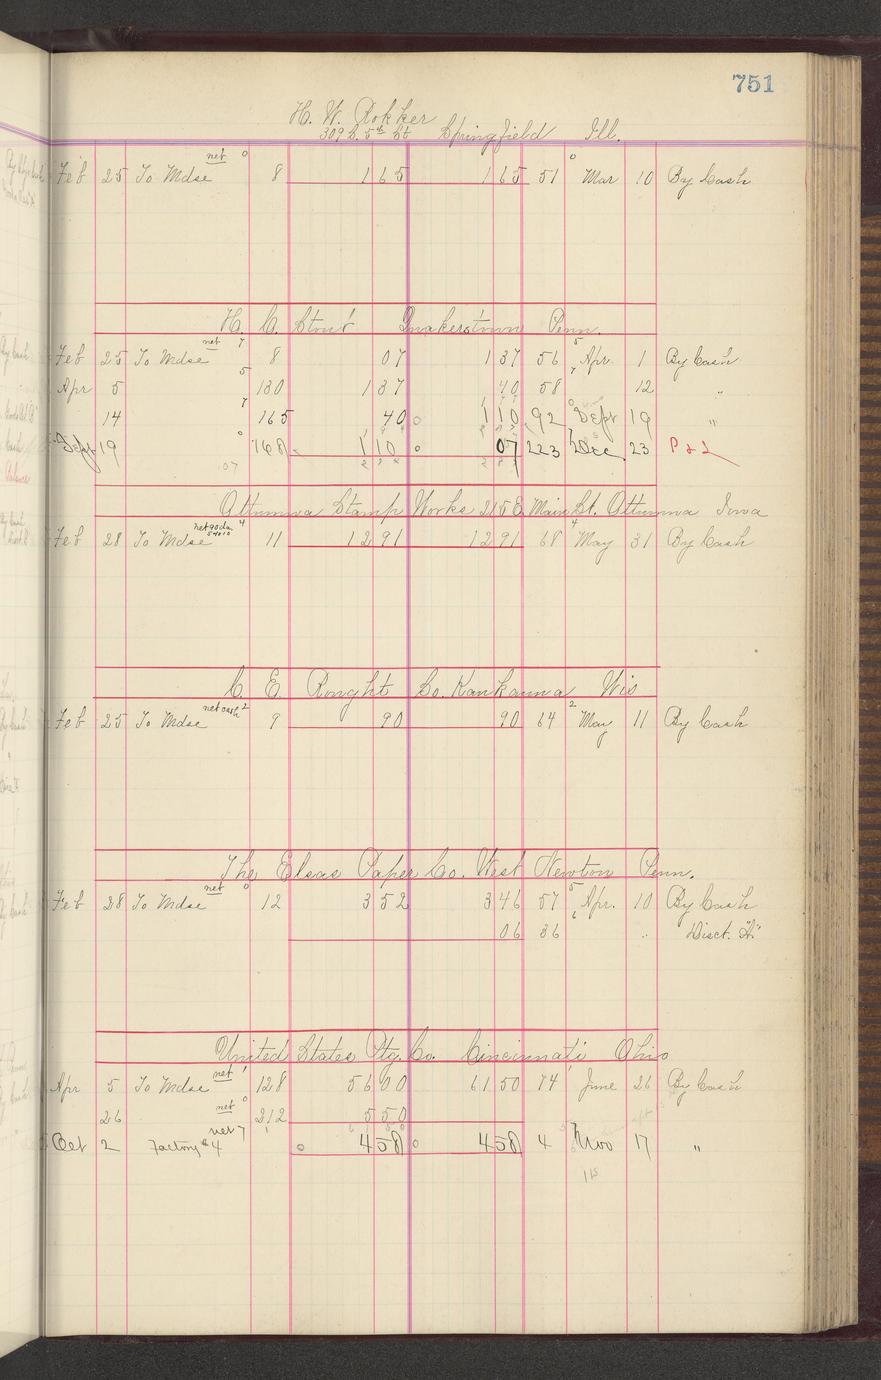 751
H. W. Rokker
309 S. 5th St Springfield Ill.
Feb 25 To Mdse net 0 8 165 165 51 0 Mar 10 By Cash
H. C. Stout Quakerstown Penn.
Feb 25 To Mdse net 7 8 07 137 56 5 Apr. 1 By Cash
Apr 5 5 130 137 40 58 7 12 "
14 7 165 40 110 92 0 Sept 19 "
Sept 19 0 768 110 07 223 7 Dec 23 P & L
07
Ottumwa Stamp Works 215 E. Main St. Ottumwa Iowa
Feb 28 To Mdse net 90 da. 4 11 1291 1291 68 4 May 31 By Cash
C. E. Rought Co. Kaukauna Wis
Feb 25 To Mdse net cash 2 9 90 90 64 2 May 11 By Cash
The Elsas Paper Co. West Newton Penn.
Feb 28 To Mdse net 0 12 352 346 57 5 Apr. 10 By Cash
06 36 6 " Disct. "A"
United States Ptg. Co. Cincinnati Ohio
Apr 5 To Mdse net 1 128 5600 6150 74 1 June 26 By Cash
26 net 0 212 550
Oct 2 Factory #4 net 7 458 458 4 7 Nov 17 "